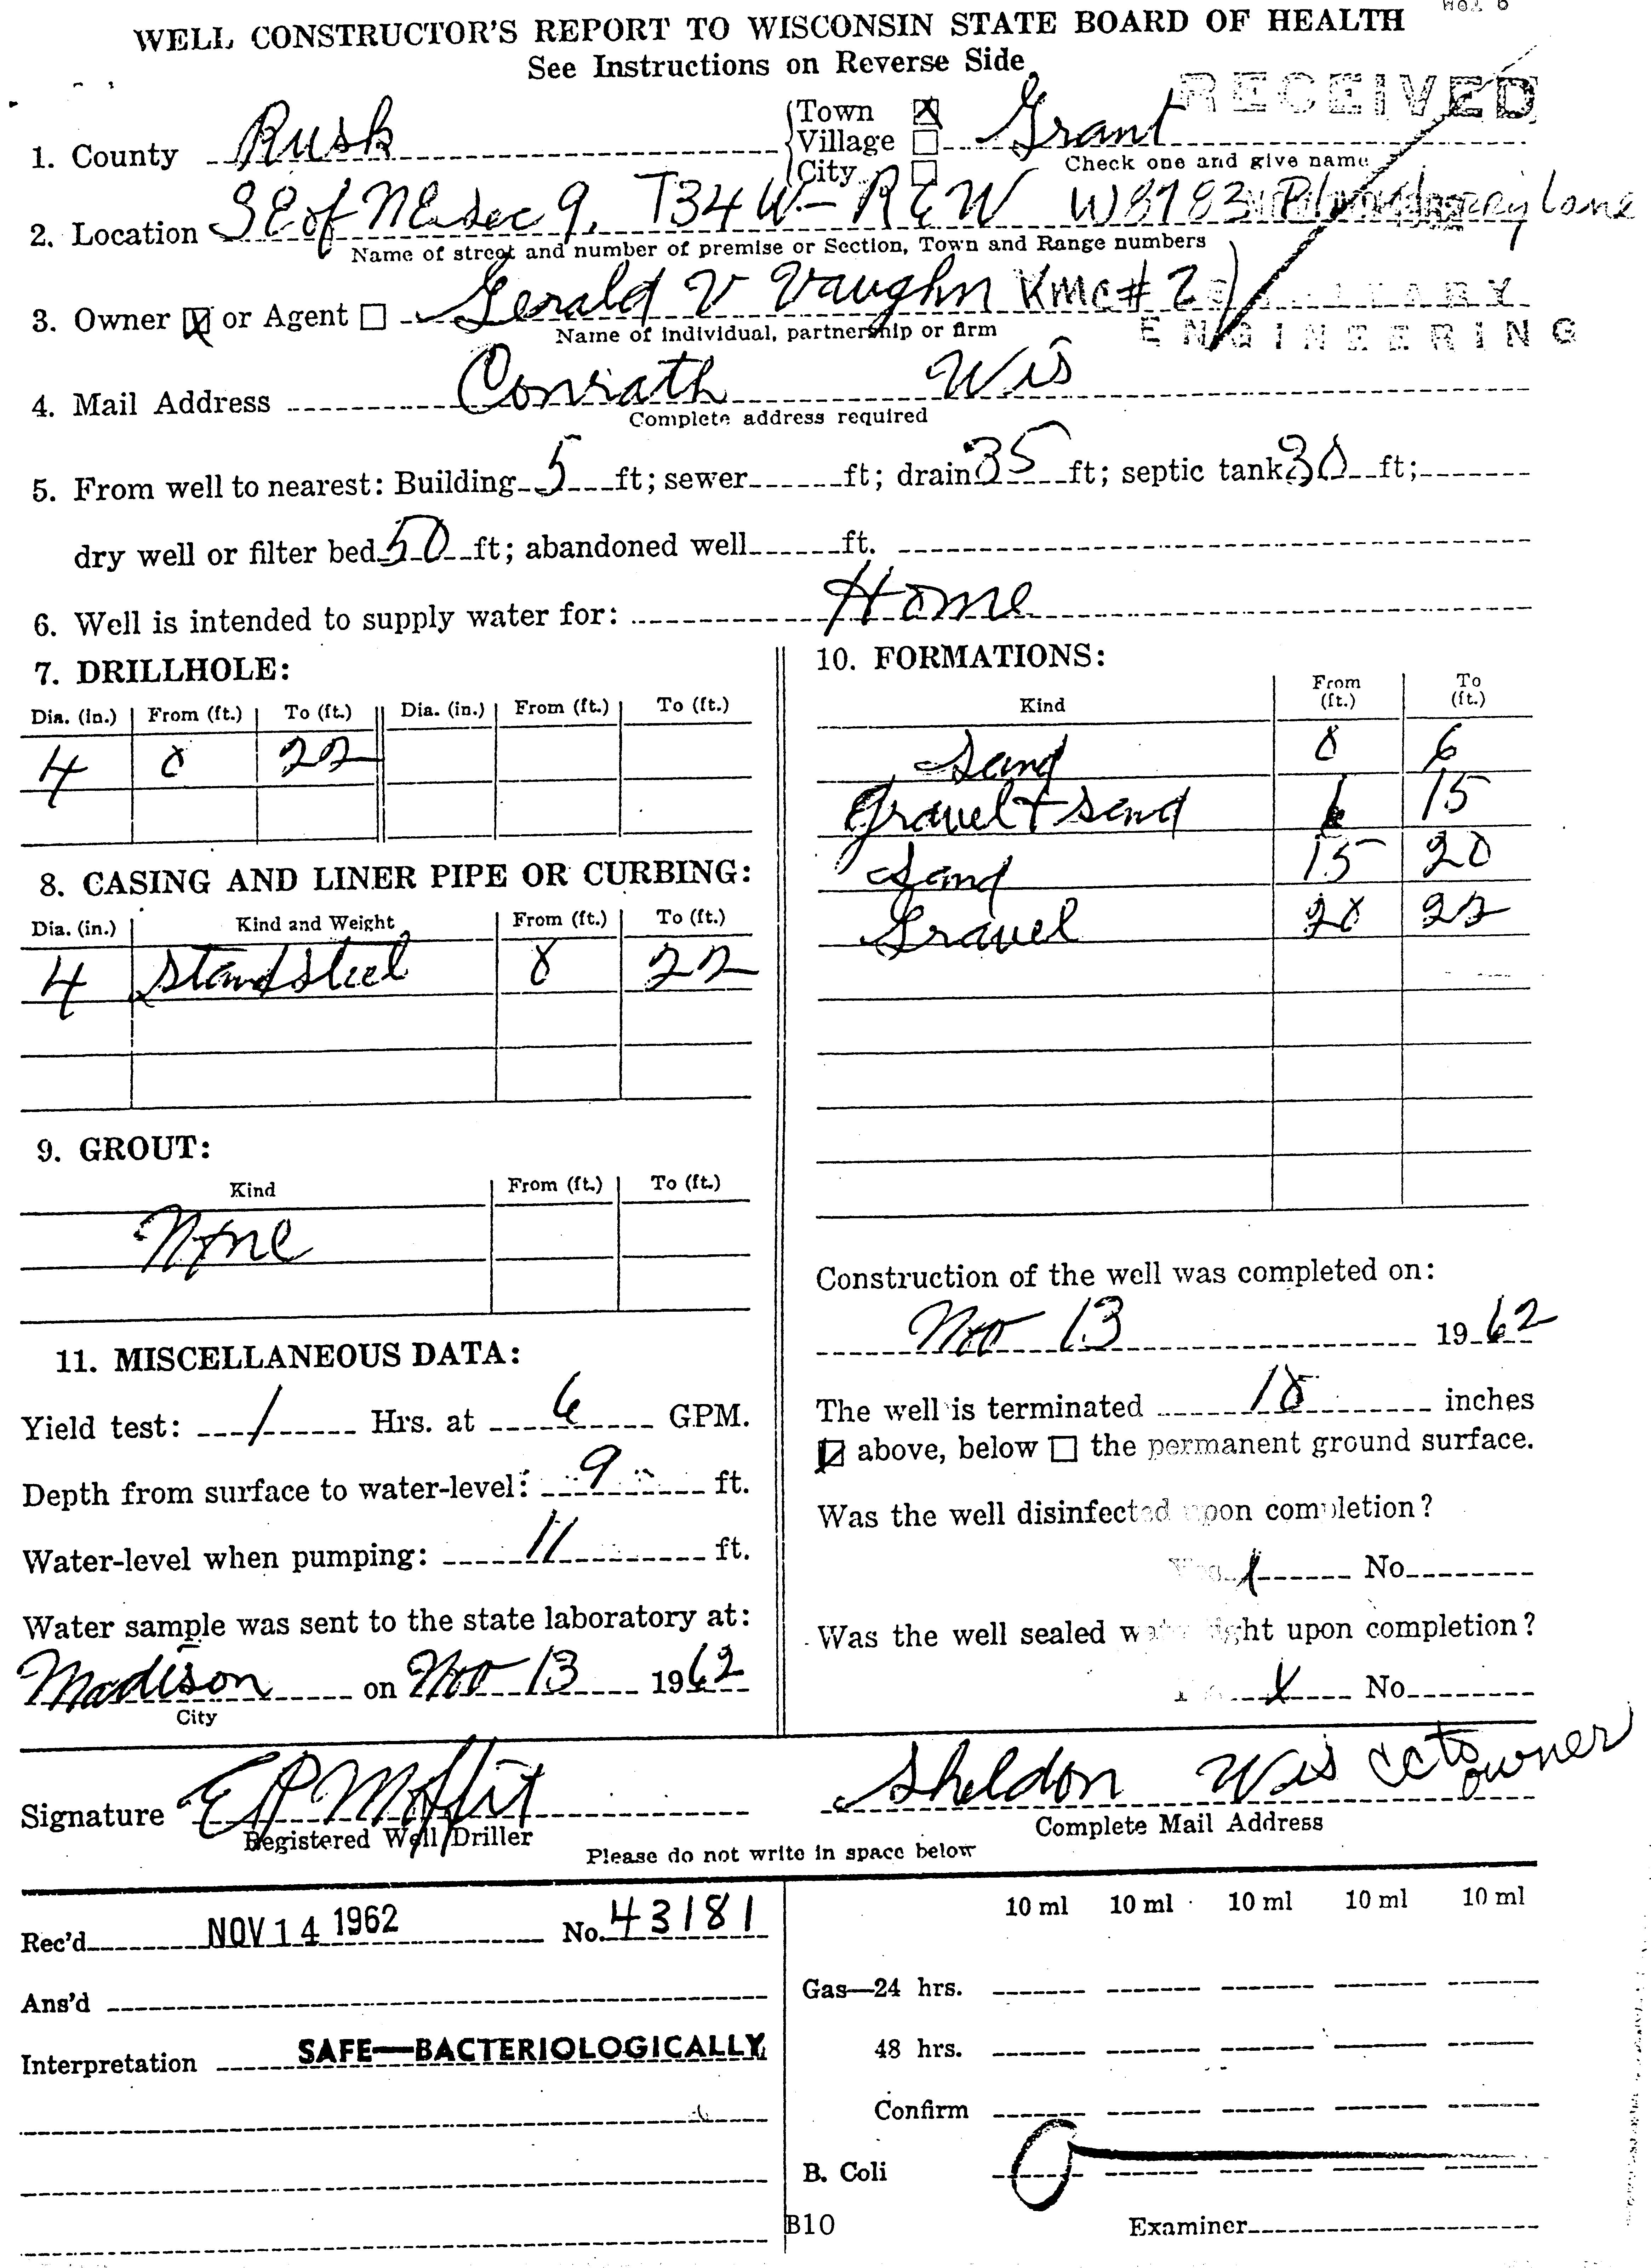 WELL CONSTRUCTOR'S REPORT TO WISCONSIN STATE BOARD OF HEALTH
See Instructions on Reverse Side
RECEIVED
1. County Rusk Town X Village City Grant
Check one and give name
2. Location SE of NE sec 9, T34 W— R6W W8183 lane
Name of street and number of premise or Section, Town and Range numbers
3. Owner X or Agent Gerald V Vaughn KMC# 2
Name of individual, partnership or firm
ENGINEERING
4. Mail Address Conrath Wis
Complete address required
5. From well to nearest: Building 5 ft; sewer ft; drain 35 ft; septic tank 30 ft;
dry well or filter bed 50 ft; abandoned well ft.
6. Well is intended to supply water for: Home
7. DRILLHOLE:
Dia. (in.) From (ft.) To (ft.) Dia. (in.) From (ft.) To (ft.)
4 0 22
8. CASING AND LINER PIPE OR CURBING:
Dia. (in.) Kind and Weight From (ft.) To (ft.)
4 Stand steel 0 22
9. GROUT:
Kind From (ft.) To (ft.)
None
10. FORMATIONS:
Kind From (ft.) To (ft.)
Sand 0 6
Gravel + Sand 6 15
Sand 15 20
Gravel 20 22
Construction of the well was completed on:
Nov 13 1962
The well is terminated 18 inches
above, below the permanent ground surface.
Was the well disinfected upon completion?
Yes X No
Was the well sealed watertight upon completion?
X No
11. MISCELLANEOUS DATA:
Yield test: 1 Hrs. at 6 GPM.
Depth from surface to water-level: 9 ft.
Water-level when pumping: 11 ft.
Water sample was sent to the state laboratory at:
Madison on Nov 13 1962
City
Signature E P Moffit Sheldon Wis cc to owner
Registered Well Driller Complete Mail Address
Please do not write in space below
Rec'd NOV 14 1962 No. 43181
Ans'd
Interpretation SAFE—BACTERIOLOGICALLY
10 ml 10 ml 10 ml 10 ml 10 ml
Gas—24 hrs.
48 hrs.
Confirm
B. Coli 0
B10
Examiner